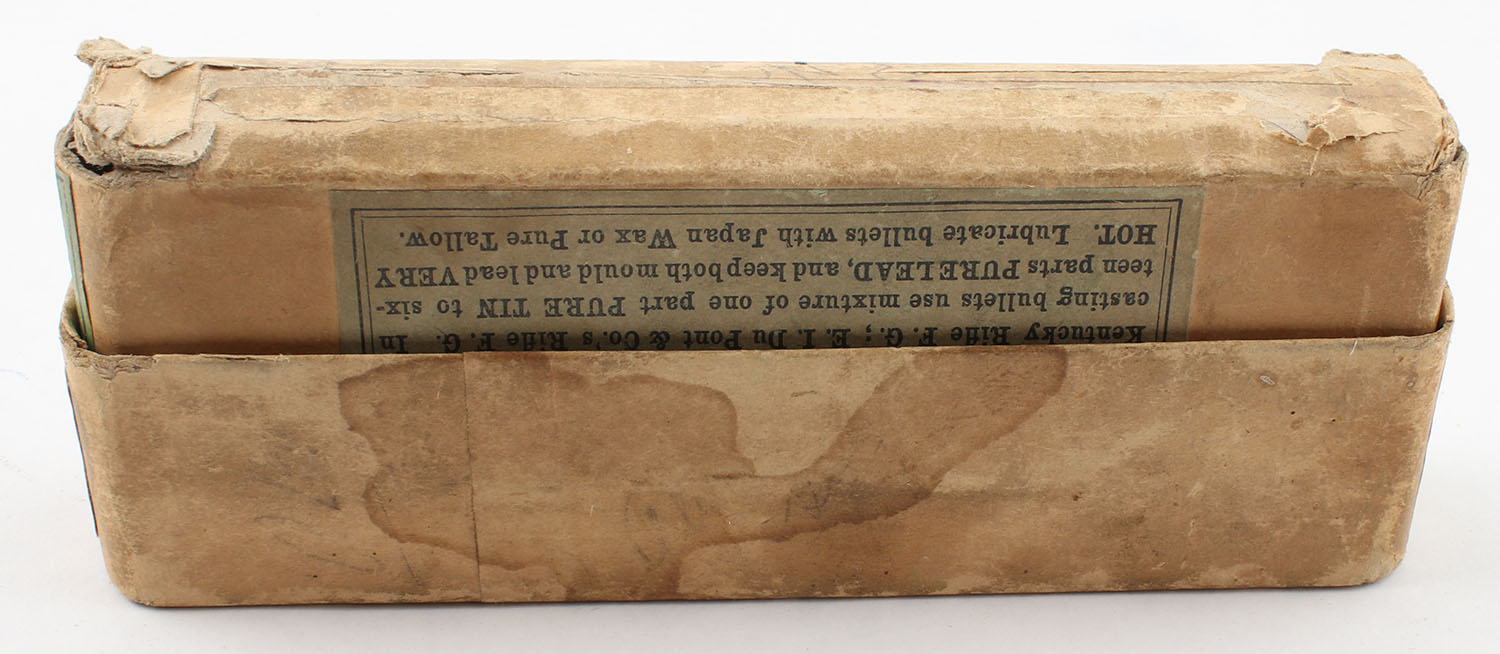 Kentucky Rifle F. G.; E. I. Du Pont & Co.'s Rifle F. G. In
casting bullets use mixture of one part PURE TIN to six-
teen parts PURE LEAD, and keep both mould and lead VERY
HOT. Lubricate bullets with Japan Wax or Pure Tallow.